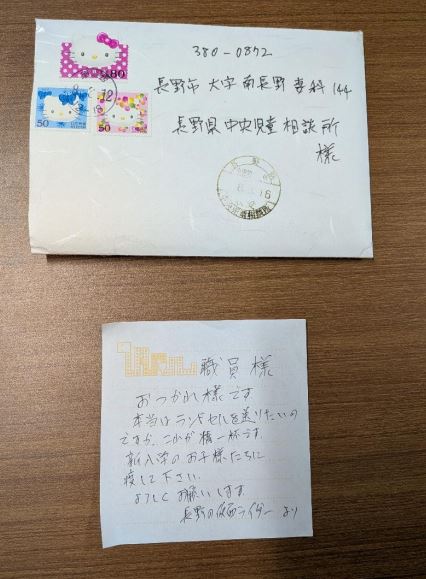 380-0872
長野市大字南長野妻科144
長野県中央児童相談所
様
80
50
50
職員様
おつかれ様です
本当はランドセルを送りたいの
ですが、これが精一杯です
新入学のお子様たちに
渡して下さい
よろしくお願いします
長野の仮面ライダーより